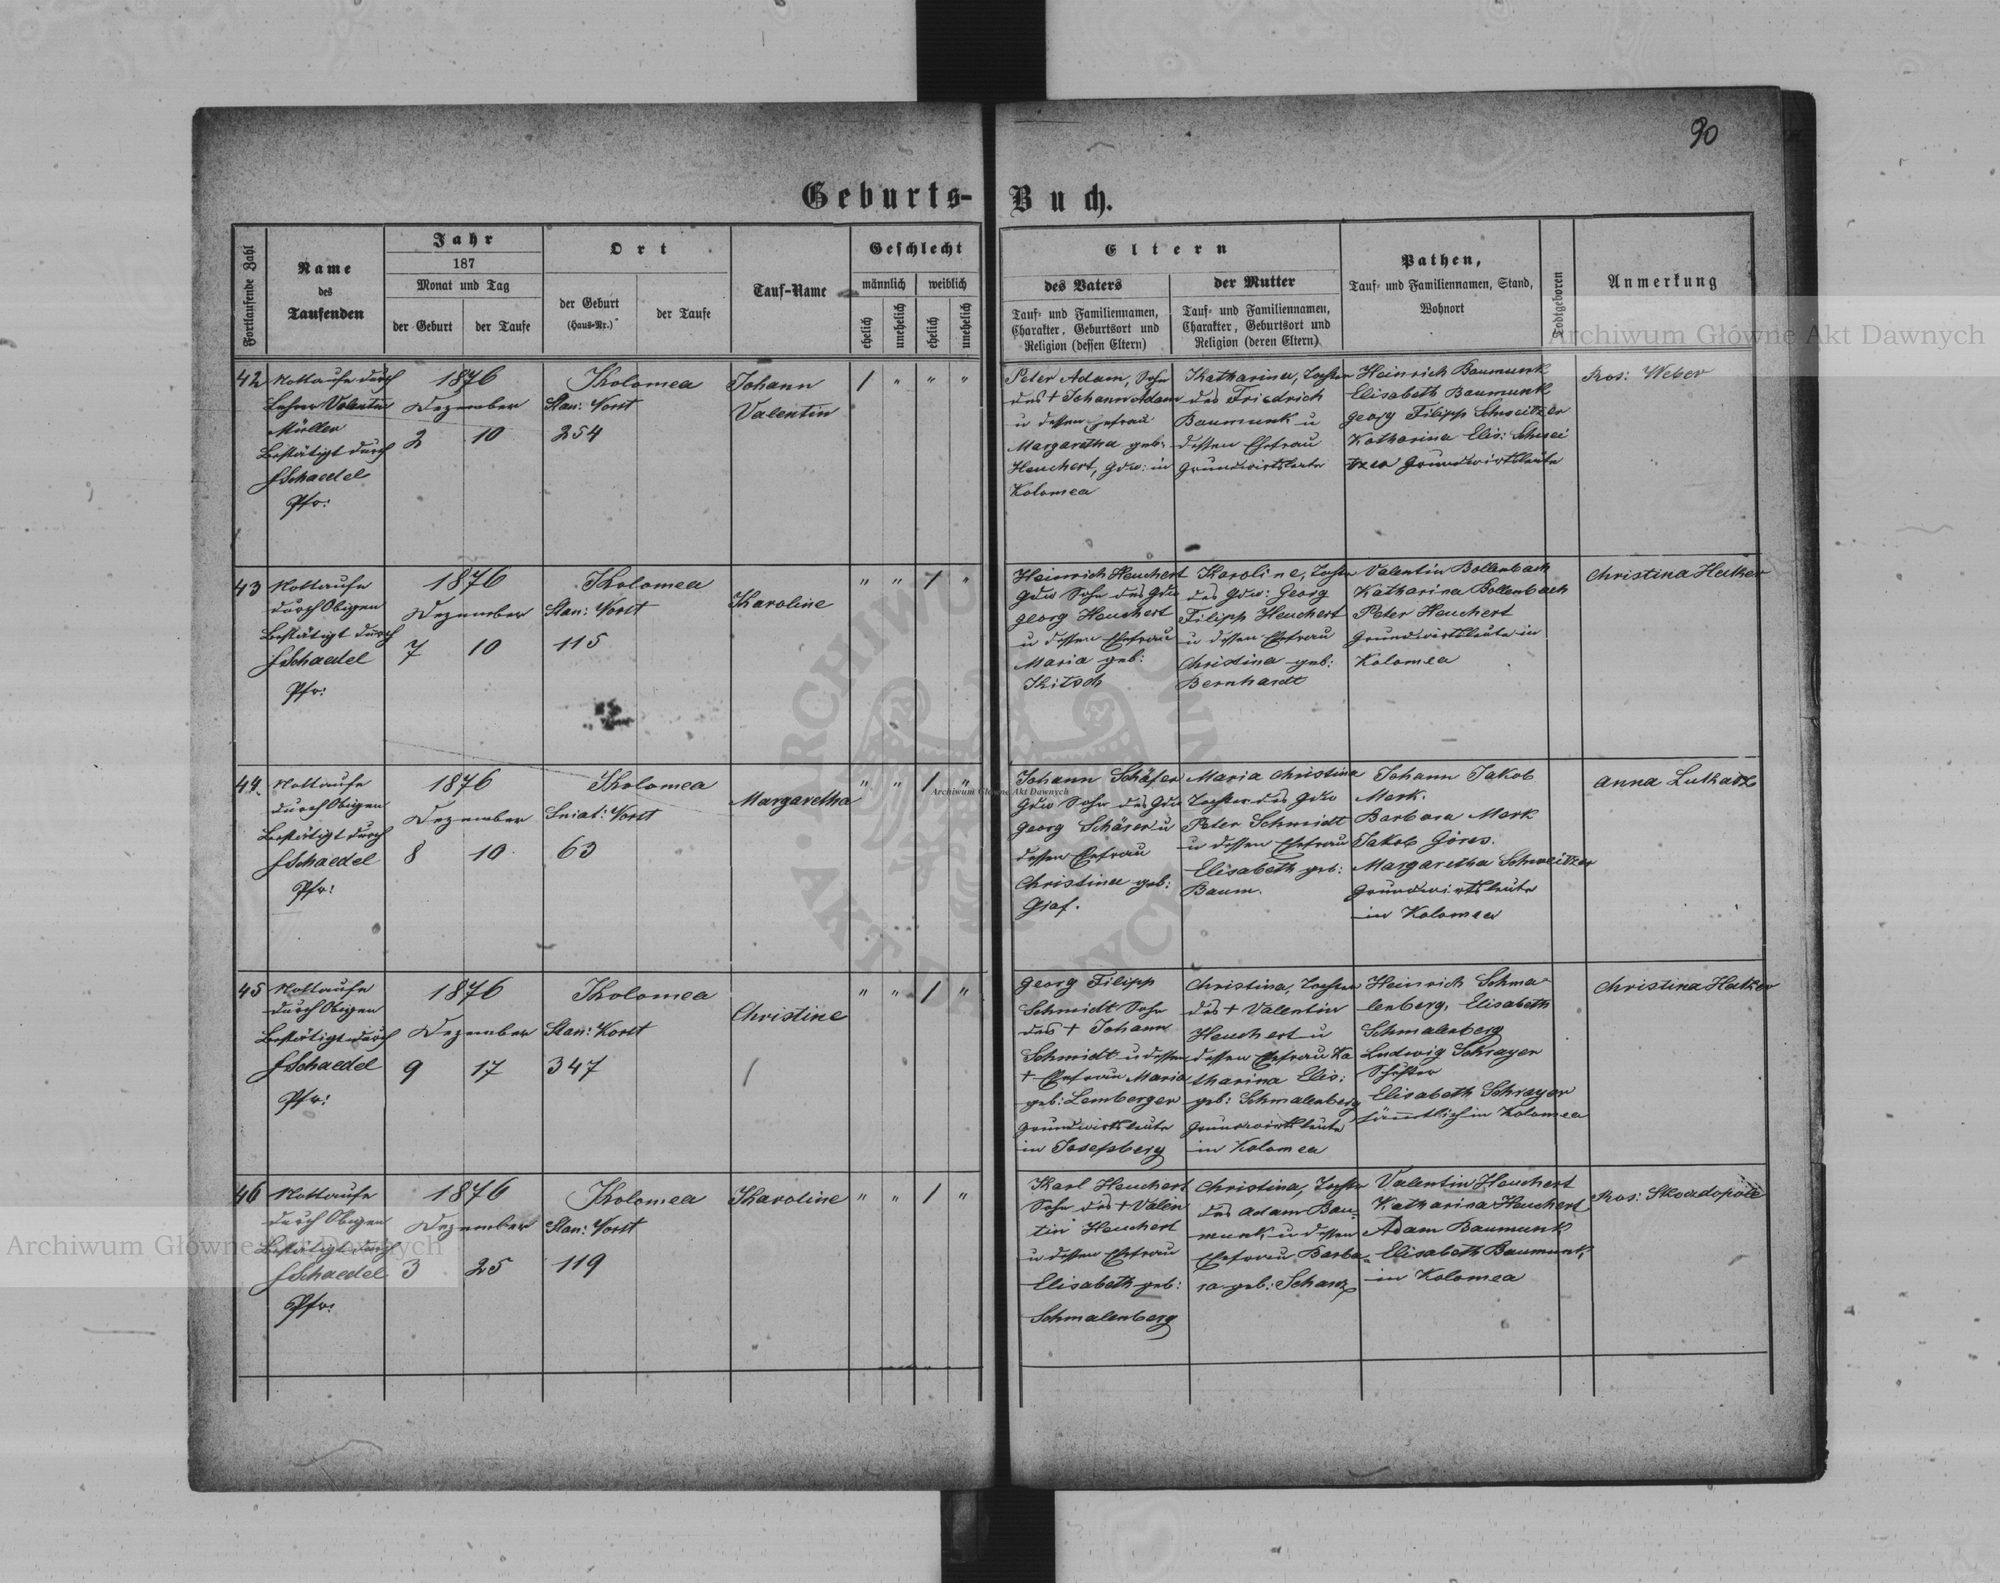 90
Geburts-Buch.
Fortlaufende Zahl
Name
des
Taufenden
Jahr
187
Monat und Tag
der Geburt
der Taufe
Ort
der Geburt
(Haus-Nr.)
der Taufe
Tauf-Name
Geschlecht
männlich
weiblich
ehelich
unehelich
ehelich
unehelich
Eltern
des Vaters
Tauf- und Familiennamen,
Charakter, Geburtsort und
Religion (dessen Eltern)
der Mutter
Tauf- und Familiennamen,
Charakter, Geburtsort und
Religion (deren Eltern)
Pathen,
Tauf- und Familiennamen, Stand,
Wohnort
Todtgeboren
Anmerkung
42
Nottaufe durch
Lehrer Valentin
Müller
Bestätigt durch
JSchaedel
Pfr:
1876
Dezember
2
10
Kolomea
Stan: Vorst
254
Johann
Valentin
/ " " "
Peter Adam, Sohn
des † Johann Adam
u dessen Ehefrau
Margaretha geb:
Heuchert, Gdw: in
Kolomea
Katharina, Tochter
des Friedrich
Baumunk u
dessen Ehefrau
Grundwirtsleute
Heinrich Baumunk
Elisabeth Baumunk
Georg Filipp Schweitzer
Katharina Elis: Schwei
tzer Grundwirtsleute
Ros: Weber
43
Nottaufe
durch Obigen
Bestätigt durch
JSchaedel
Pfr:
1876
Dezember
7
10
Kolomea
Stan: Vorst
115
Karoline
" " / "
Heinrich Heuchert
Gdw Sohn des Gdw
Georg Heuchert
u dessen Ehefrau
Maria geb:
Kitsch
Karoline, Tochter
des Gdw: Georg
Filipp Heuchert
u dessen Ehefrau
Christina geb:
Bernhardt
Valentin Bollenbach
Katharina Bollenbach
Peter Heuchert
Grundwirtsleute in
Kolomea
Christina Halker
44
Nottaufe
durch Obigen
Bestätigt durch
JSchaedel
Pfr:
1876
Dezember
8
10
Kolomea
Sniat: Vorst
63
Margaretha
" " / "
Johann Schäfer
Gdw Sohn des Gdw
Georg Schäfer u
dessen Ehefrau
Christina geb:
Graf.
Maria Christina
Tochter des Gdw
Peter Schmidt
u dessen Ehefrau
Elisabeth geb:
Baum.
Johann Jakob
Merk.
Barbara Merk
Jakob Göres.
Margaretha Schweitzer
Grundwirtsleute
in Kolomea
Anna Lukatz
45
Nottaufe
durch Obigen
Bestätigt durch
JSchaedel
Pfr:
1876
Dezember
9
17
Kolomea
Stan: Vorst
347
Christine
/
" " / "
Georg Filipp
Schmidt Sohn
des † Johann
Schmidt u dessen
† Ehefrau Maria
geb: Lemberger
Grundwirtsleute
in Josefsberg
Christina, Tochter
des † Valentin
Heuchert u
dessen Ehefrau Ka
tharina Elis:
geb: Schmalenberg
Grundwirtsleute
in Kolomea
Heinrich Schma-
lenberg, Elisabeth
Schmalenberg
Ludwig Schrayer
Elisabeth Schrayer
sämmtlich in Kolomea
Christina Halker
46
Nottaufe
durch Obigen
Bestätigt durch
JSchaedel
Pfr:
1876
Dezember
3
25
Kolomea
Stan: Vorst
119
Karoline
" " / "
Karl Heuchert
Sohn des † Valen
tin Heuchert
u dessen Ehefrau
Elisabeth geb:
Schmalenberg
Christina, Tochter
des Adam Bau-
munk, u dessen
Ehefrau Barba-
ra geb: Schanz
Valentin Heuchert
Katharina Heuchert
Adam Baumunk
Elisabeth Baumunk,
in Kolomea
Archiwum Główne Akt Dawnych
Archiwum Główne Akt Dawnych
Archiwum Główne Akt Dawnych